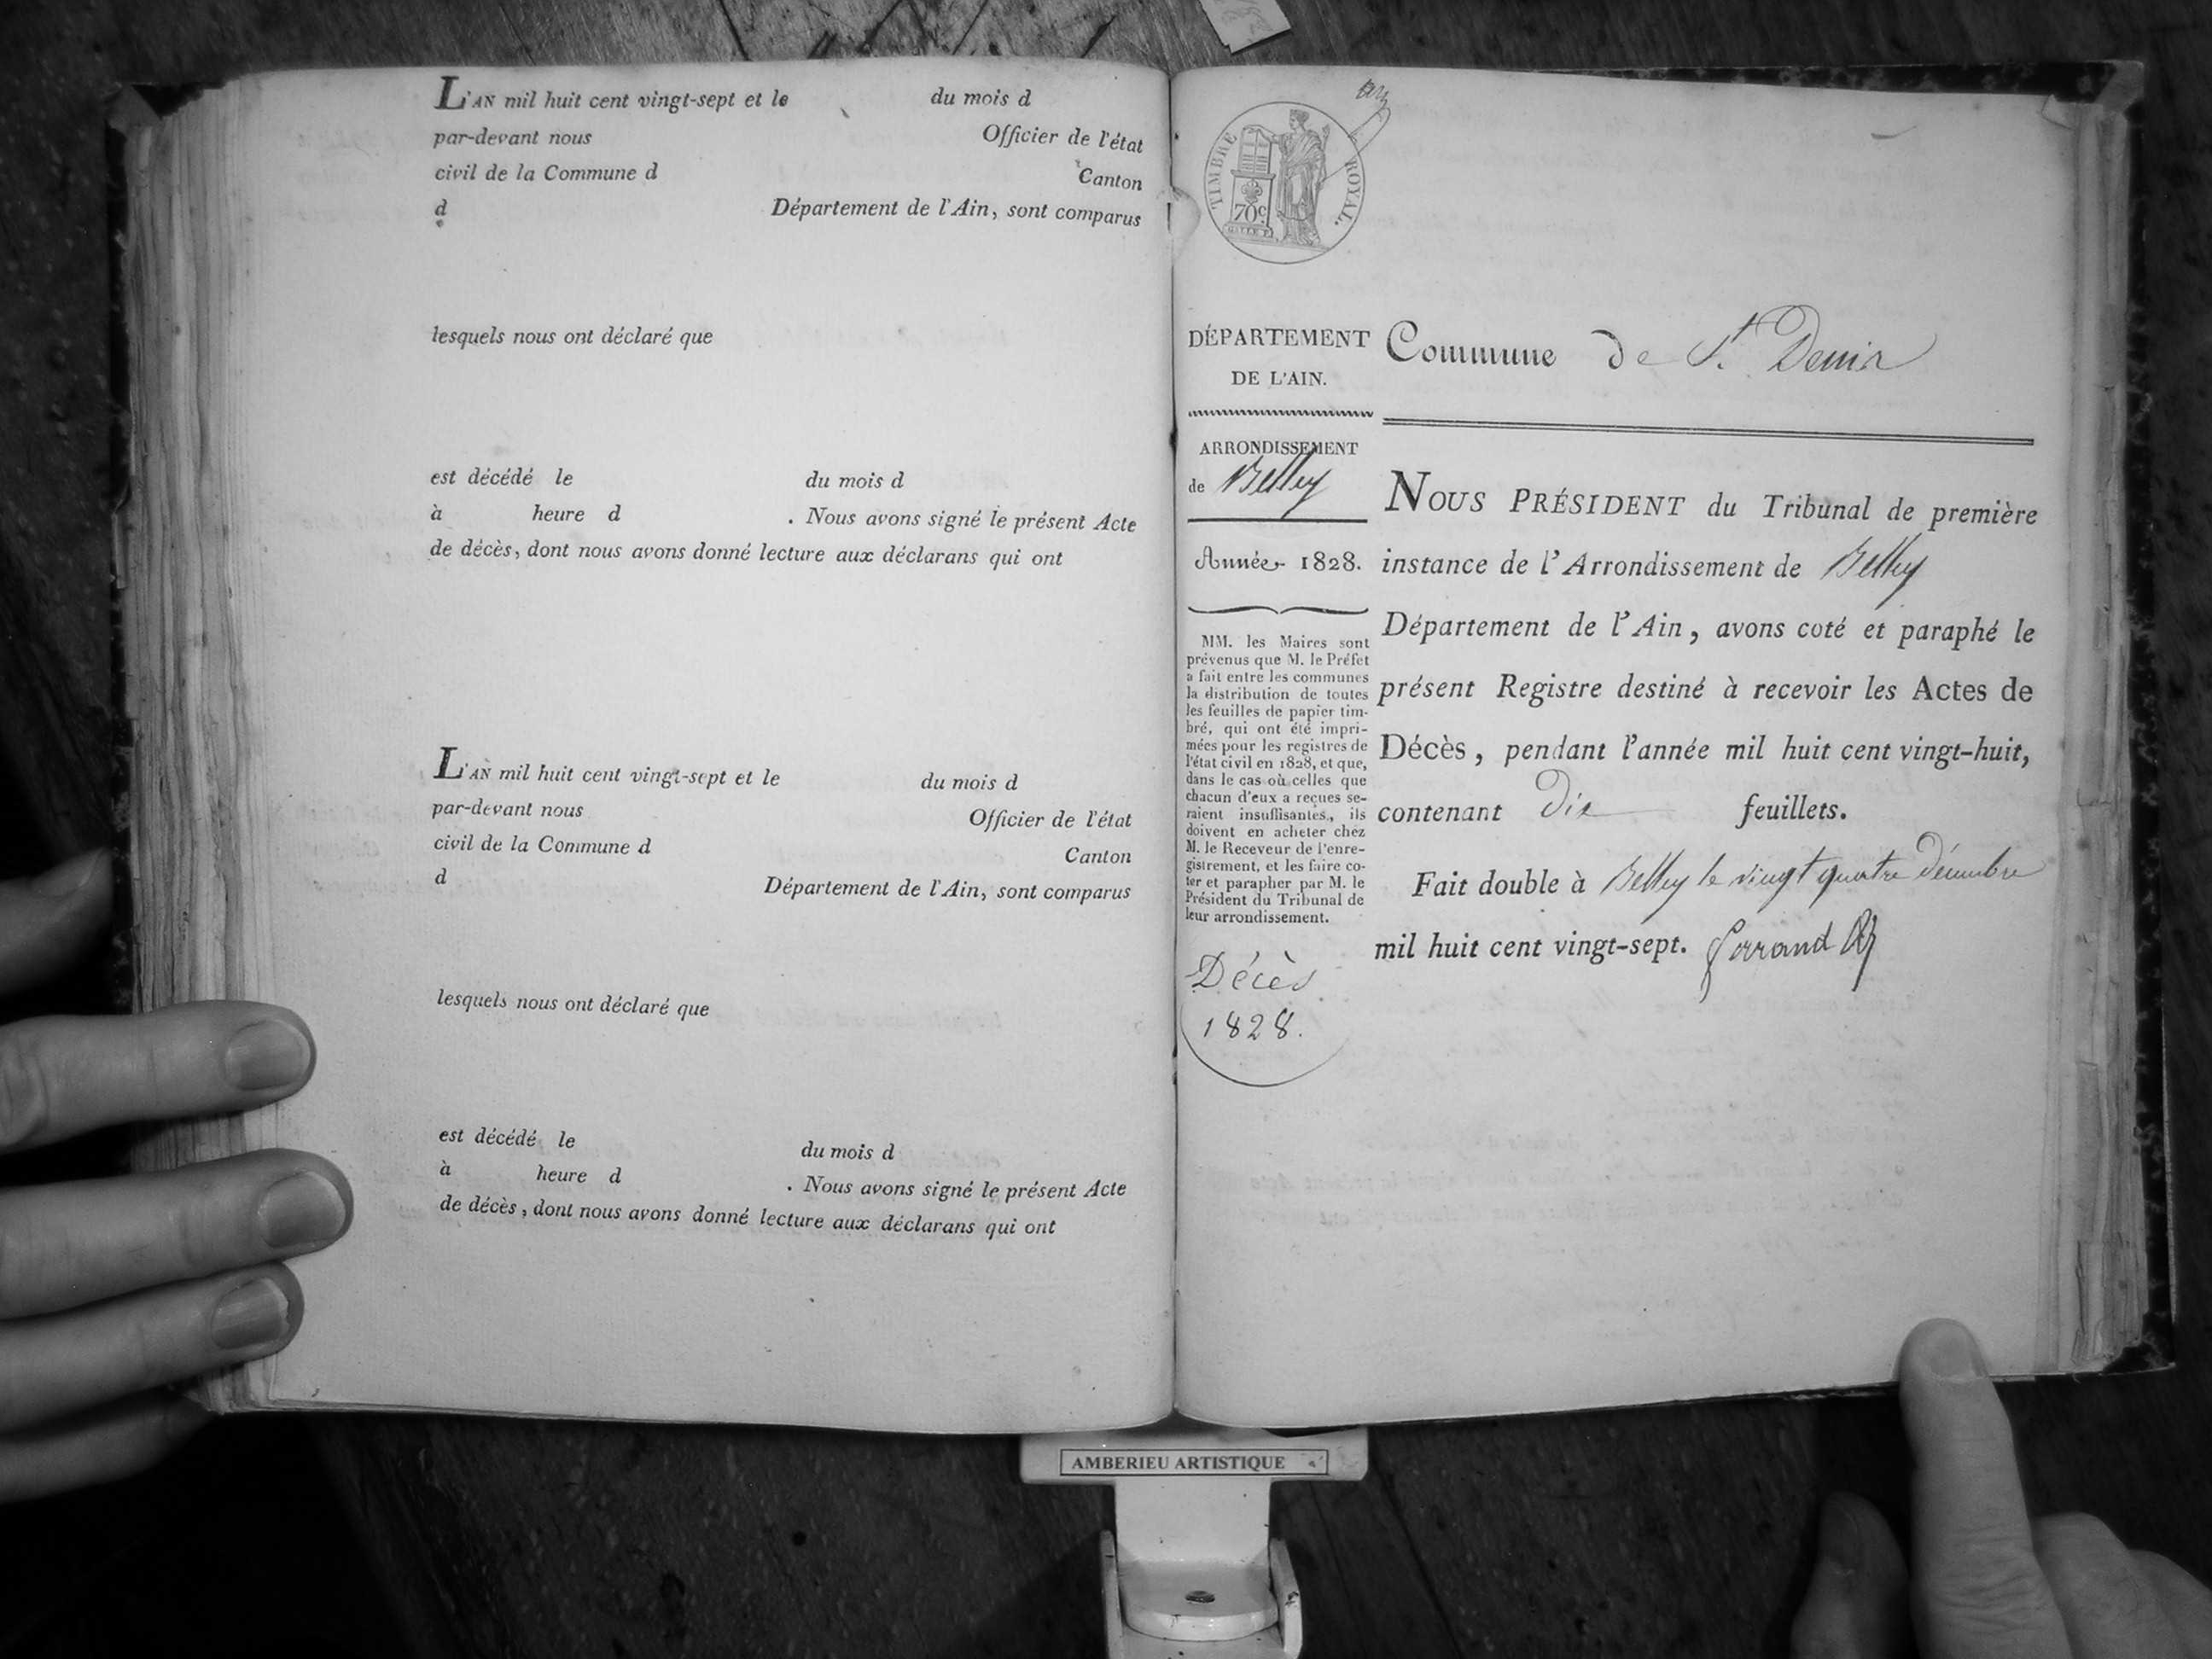 L'AN mil huit cent vingt-sept et le du mois d
par-devant nous Officier de l'état
civil de la Commune d Canton
d Département de l'Ain, sont comparus
lesquels nous ont déclaré que
est décédé le du mois d
à heure d . Nous avons signé le présent Acte
de décès, dont nous avons donné lecture aux déclarans qui ont
L'AN mil huit cent vingt-sept et le du mois d
par-devant nous Officier de l'état
civil de la Commune d Canton
d Département de l'Ain, sont comparus
lesquels nous ont déclaré que
est décédé le du mois d
à heure d . Nous avons signé le présent Acte
de décès, dont nous avons donné lecture aux déclarans qui ont
TIMBRE ROYAL.
70 c.
DÉPARTEMENT
DE L'AIN.
ARRONDISSEMENT
de Belley
Année 1828.
MM. les Maires sont
prévenus que M. le Préfet
a fait entre les communes
la distribution de toutes
les feuilles de papier tim-
bré, qui ont été impri-
mées pour les registres de
l'état civil en 1828, et que,
dans le cas où celles que
chacun d'eux a reçues se-
raient insuffisantes, ils
doivent en acheter chez
M. le Receveur de l'enre-
gistrement, et les faire co-
ter et parapher par M. le
Président du Tribunal de
leur arrondissement.
Décès
1828.
Commune de St. Denis
NOUS PRÉSIDENT du Tribunal de première
instance de l'Arrondissement de Belley
Département de l'Ain, avons coté et paraphé le
présent Registre destiné à recevoir les Actes de
Décès, pendant l'année mil huit cent vingt-huit,
contenant Dix feuillets.
Fait double à Belley le vingt quatre décembre
mil huit cent vingt-sept.
AMBERIEU ARTISTIQUE